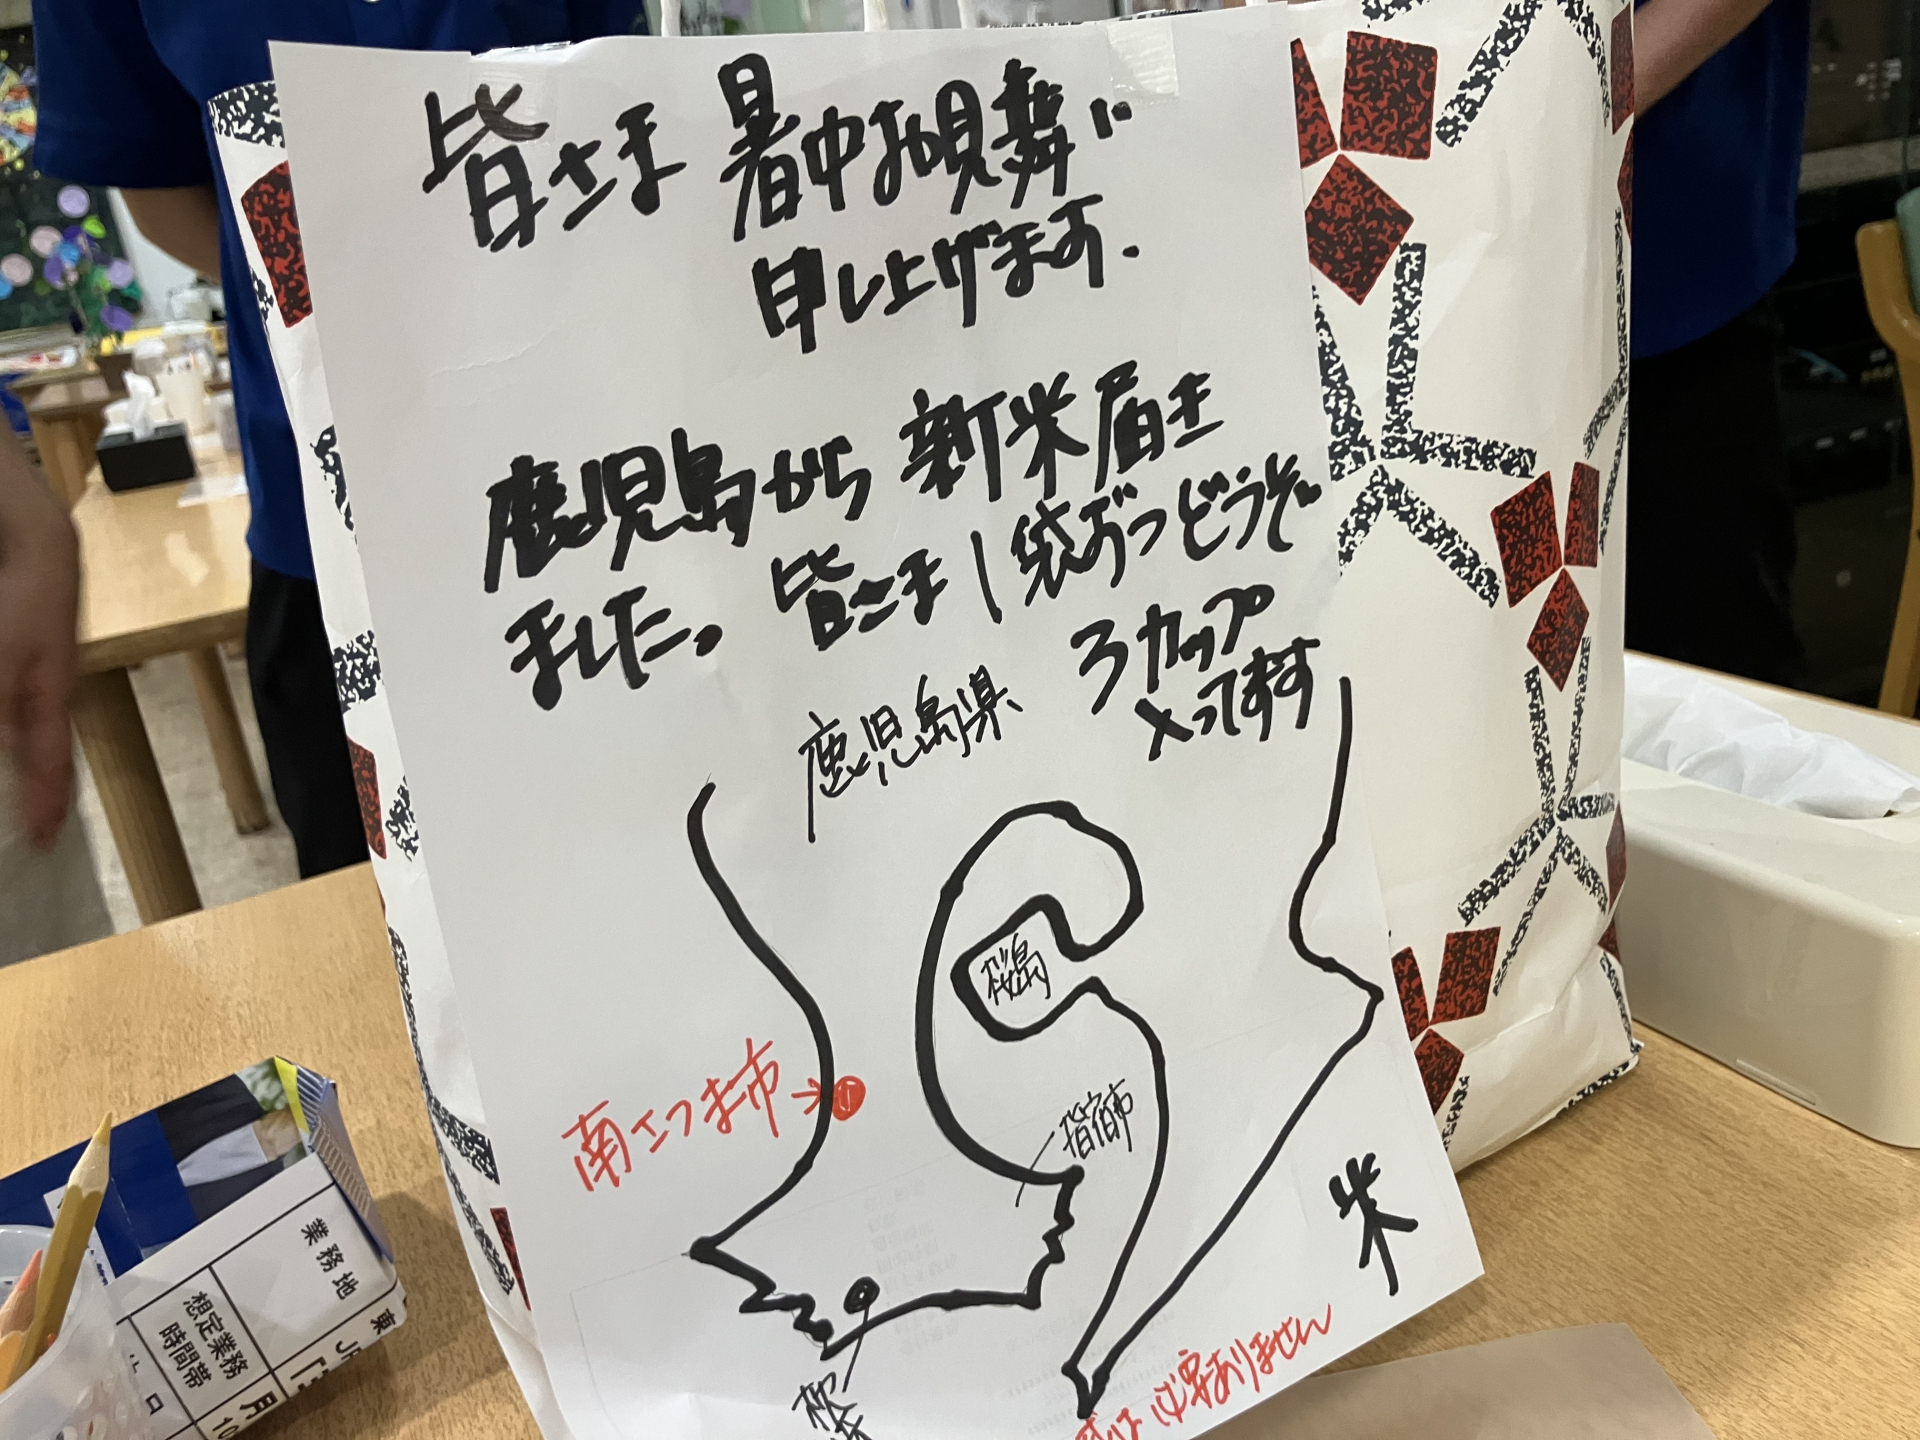 皆さま 暑中お見舞い
申し上げます.
鹿児島から 新米届き
ました。 皆さま1袋ずつどうぞ。
3カップ
入ってます
鹿児島県
桜島
南さつま市→
指宿市
米
必要ありません
業務地
想定業務
時間帯
東
月